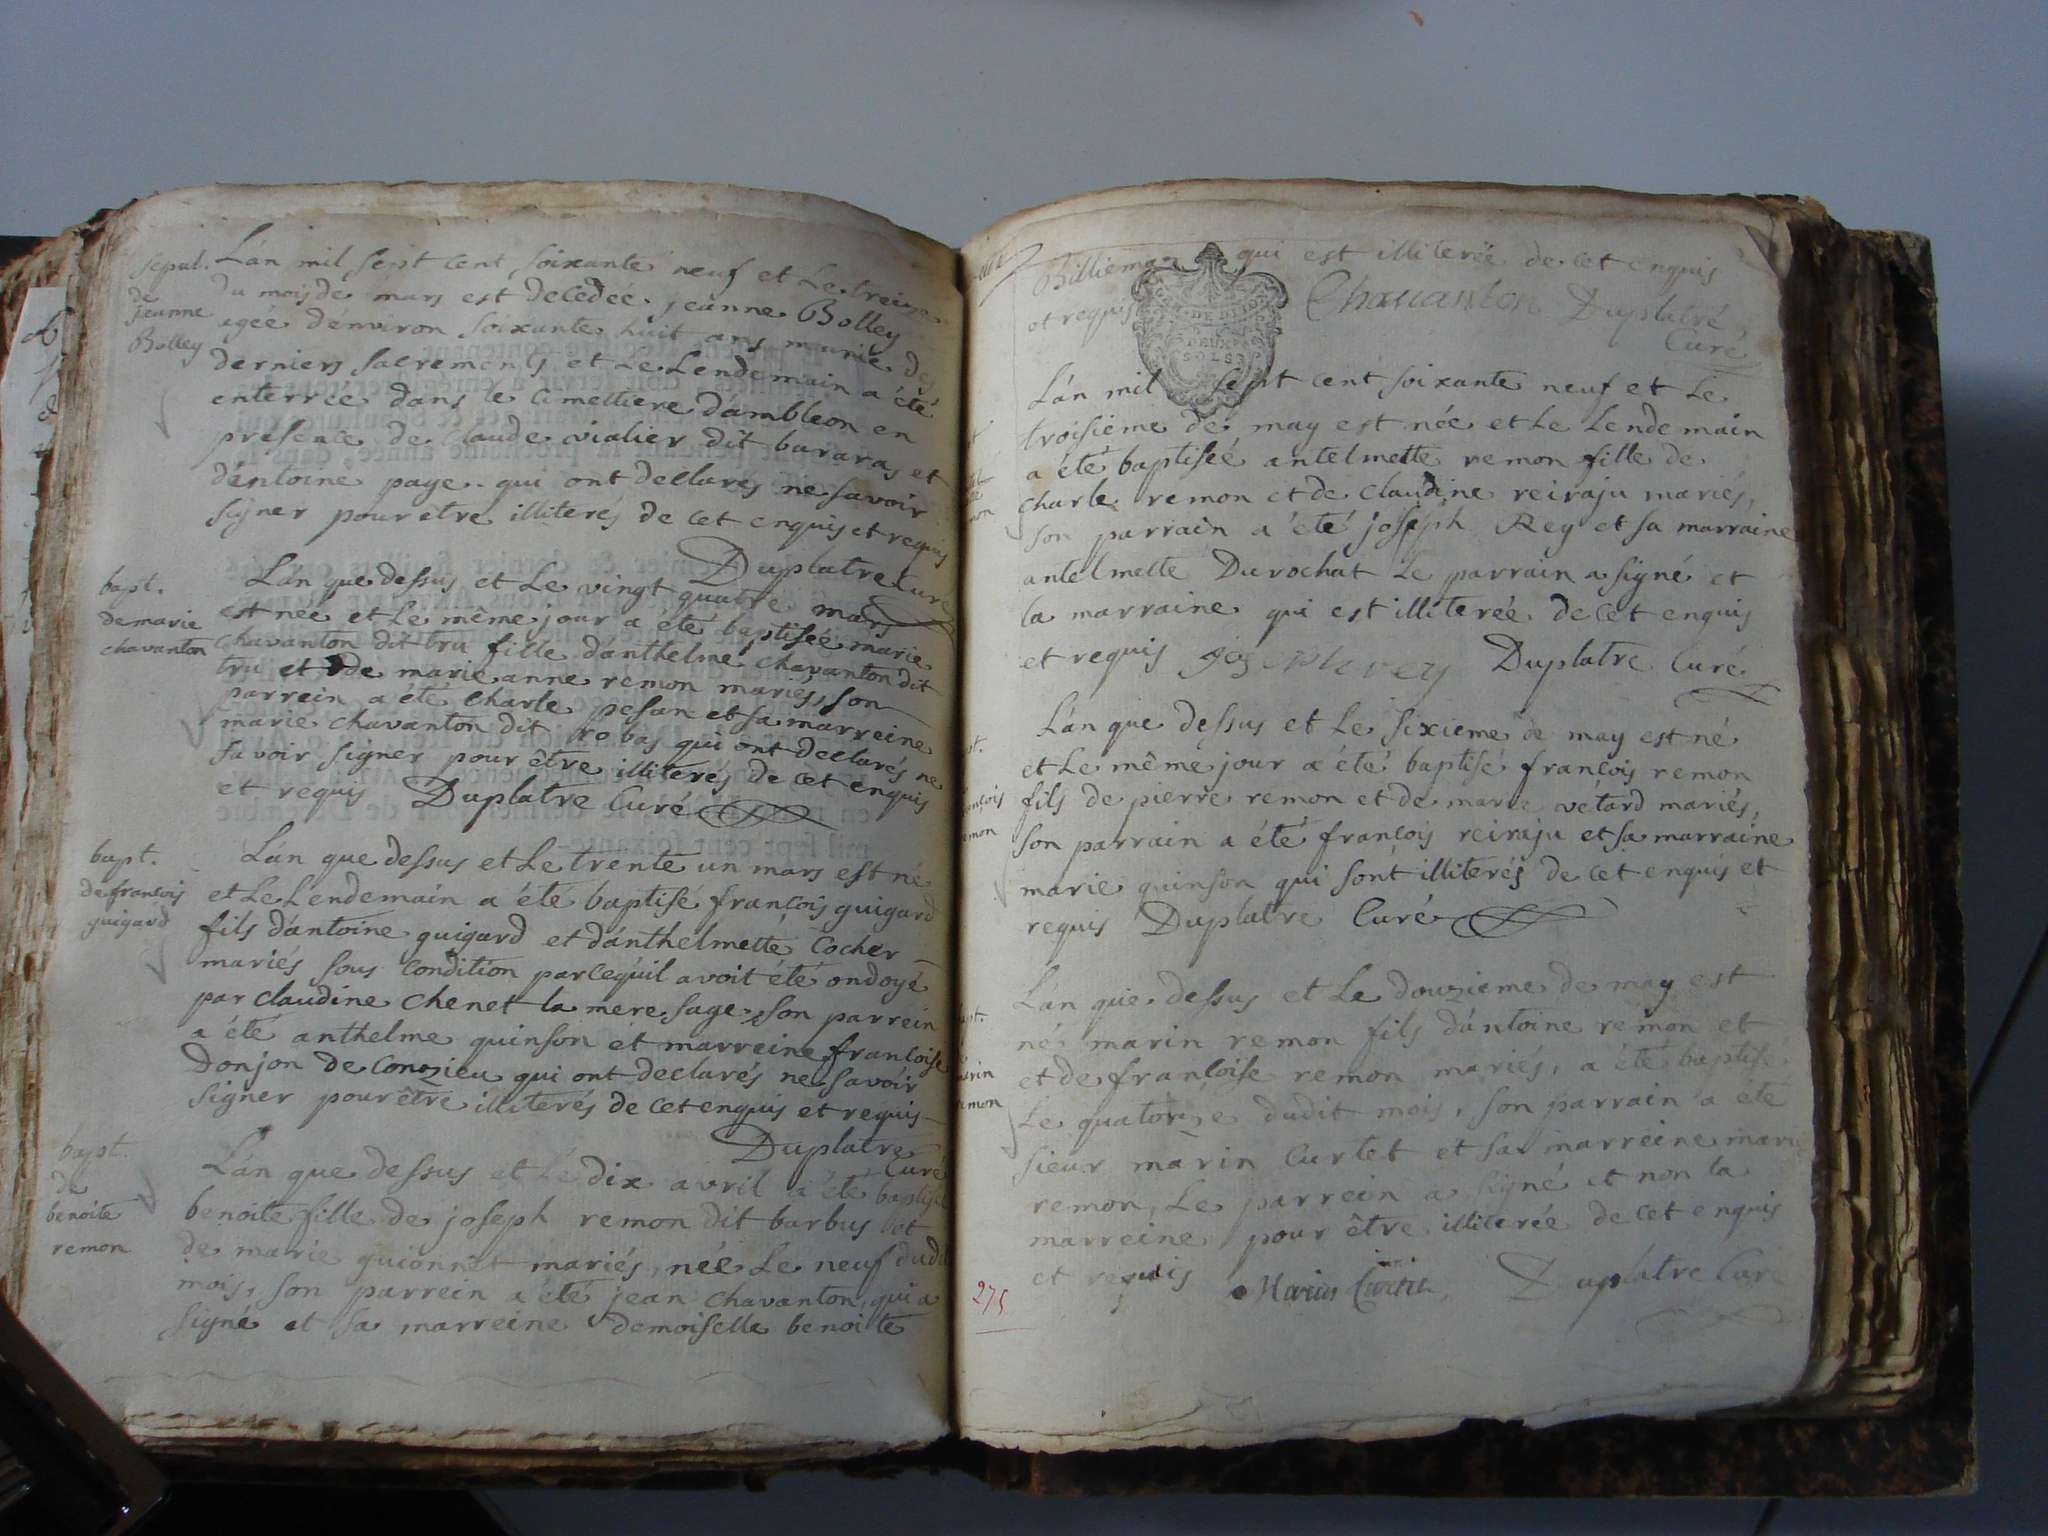 sepul.
de
jeanne
Bolley
L'an mil sept cent soixante neuf et Le treize
du mois de mars est decedeé jeanne Bolley
agée d'environ soixante huit ans munie des
derniers sacrements et Le Lendemain a été
enterreé dans le cimettiere d'ambleon en
presence de Claude vialier dit bararas et
d'entoine page qui ont declarés ne savoir
signer pour etre illiterés de cet enquis et requis
Duplatre Curé
bapt.
de marie
chavanton
L'an que dessus et Le vingt quatre mars
est neé et Le même jour a été baptiseé marie
chavanton dit tru fille d'anthelme chavanton dit
tru et de marie anne remon mariés, son
parrein a été charle pesan et sa marreine
marie chavanton dit robas qui ont declarés ne
savoir signer pour être illiterés de cet enquis
et requis Duplatre Curé
bapt.
de françois
guigard
L'an que dessus et Le trente un mars est né
et Le Lendemain a été baptisé françois guigard
fils d'antoine guigard et d'anthelmette Cocher
mariés sous condition parcequ'il avoit été ondoyé
par claudine chenet la mere sage, son parrein
a été anthelme quinson et marreine françoise
Donjon de Conzieu qui ont declarés ne savoir
signer pour être illiterés de cet enquis et requis
Duplatre
Curé
bapt.
de
benoite
remon
L'an que dessus et Le dix avril a été baptiseé
benoite fille de joseph remon dit barbus et
de marie guionnet mariés, neé Le neuf dudit
mois, son parrein a été jean chavanton, qui a
signé et sa marreine demoiselle benoite
Billiemaz qui est illitereé de cet enquis
et requis Chauanton Duplatre
Curé
DEUX
SOLS
L'an mil sept cent soixante neuf et Le
troisieme de may est née et Le Lendemain
a été baptiseé antelmette remon fille de
charle remon et de claudine reiraju mariés,
son parrain a été joseph Rey et sa marraine
antelmette Durochat Le parrain a signé et
la marraine qui est illitereé de cet enquis
et requis Joseph rey Duplatre Curé
L'an que dessus et Le sixieme de may est né
et Le même jour a été baptisé françois remon
fils de pierre remon et de marie vétard mariés,
son parrain a été françois reiraju et sa marraine
marie quinson qui sont illiterés de cet enquis et
requis Duplatre Curé
L'an que dessus et Le douzieme de may est
né marin remon fils d'antoine remon et
et de françoise remon mariés, a été baptisé
Le quatorze dudit mois, son parrain a été
sieur marin Curtet et sa marreine marie
remon, Le parrein a signé et non la
marreine pour être illitereé de cet enquis
et requis Marin Curtet Duplatre Curé
275